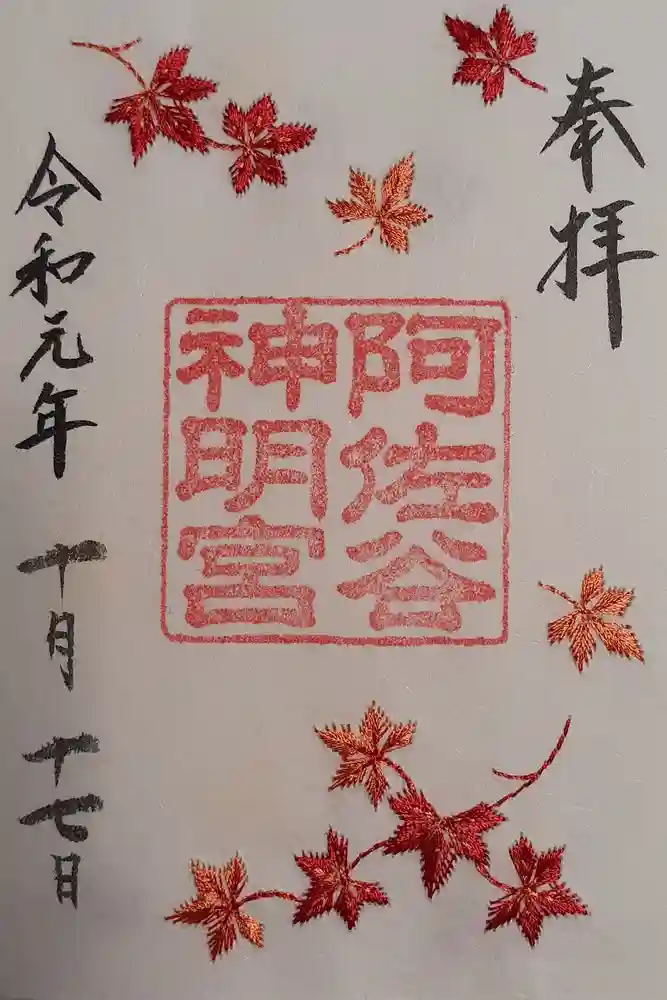 奉拝
阿佐谷
神明宮
令和元年 十月 十七日